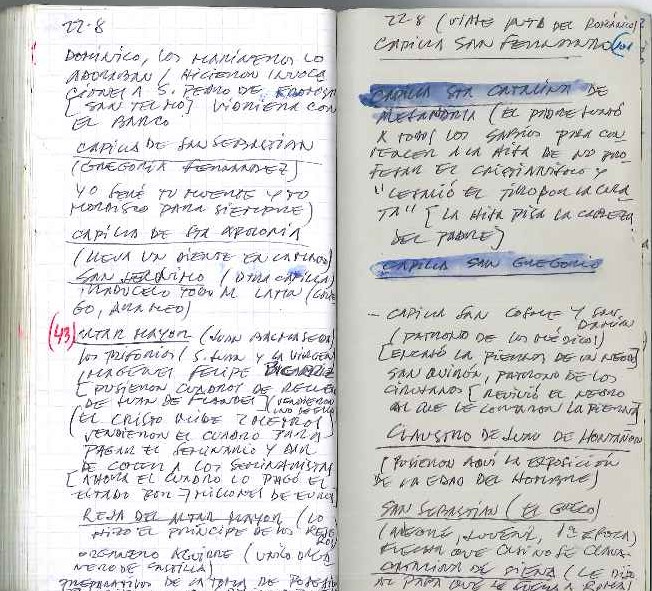 22-8
DOMINICO, LOS MARINEROS LO
ADORABAN / HICIERON INVOCA
CIONES A S. PEDRO DE
[SAN TELMO] VIDRIERA CON
EL BARCO
CAPILLA DE SAN SEBASTIAN
(GREGORIO FERNANDEZ)
YO SERÉ TU MUERTE Y TU
MORDISCO PARA SIEMPRE)
CAPILLA DE STA APOLONIA
(LLEVA UN DIENTE EN LA MANO)
SAN JERONIMO (OTRA CAPILLA)
TRADUCELO TODO AL LATIN (GRIE
GO, ARAMEO)
(43) ALTAR MAYOR (JUAN BALMASEDA)
LOS TRIFORIOS / S. JUAN Y LA VIRGEN
IMAGENES FELIPE BIGARNY
[PUSIERON CUADROS DE RELLENO
DE JUAN DE FLANDES]
(EL CRISTO MIDE 2 METROS)
VENDIERON EL CUADRO PARA
PAGAR EL SEMINARIO Y DAR
DE COMER A LOS SEMINARISTAS
[AHORA EL CUADRO LO PAGÓ EL
ESTADO POR 7 MILLONES DE EUROS]
REJA DEL ALTAR MAYOR (LO
HIZO EL PRINCIPE DE LOS REJE
ROS
AGUIRRE
NERO DE CASTILLA)
PREPARATIVOS DE LA TOMA DE
22-8 (VIAJE RUTA DEL ROMÁNICO)
CAPILLA SAN FERNANDO
CAPILLA STA CATALINA DE
ALEJANDRIA (EL PADRE JUNTÓ
A TODOS LOS SABIOS PARA CON
VENCER A LA HIJA DE NO PRO
FESAR EL CRISTIANISMO Y
"LE SALIÓ EL TIRO POR LA CULA
TA" [LA HIJA PISA LA CABEZA
DEL PADRE]
CAPILLA SAN GREGORIO
- CAPILLA SAN COSME Y SAN
DAMIAN
(PATRONO DE LOS MÉDICOS)
[ENCAJÓ LA PIERNA DE UN NEGRO]
SAN QUIRÓN, PATRONO DE LOS
CIRUJANOS [REVIVIÓ EL NEGRO
AL QUE LE CORTARON LA PIERNA]
CLAUSTRO DE JUAN DE HONTAÑON
[PUSIERON AQUÍ LA EXPOSICIÓN
DE LA EDAD DEL HOMBRE]
SAN SEBASTIAN (EL GRECO)
(ALEGRE, JUVENIL, 1ª EPOCA)
FLECHA QUE CASI NO SE CLAVA
CATALINA DE SIENA (LE DIJO
AL PAPA QUE A ROMA)